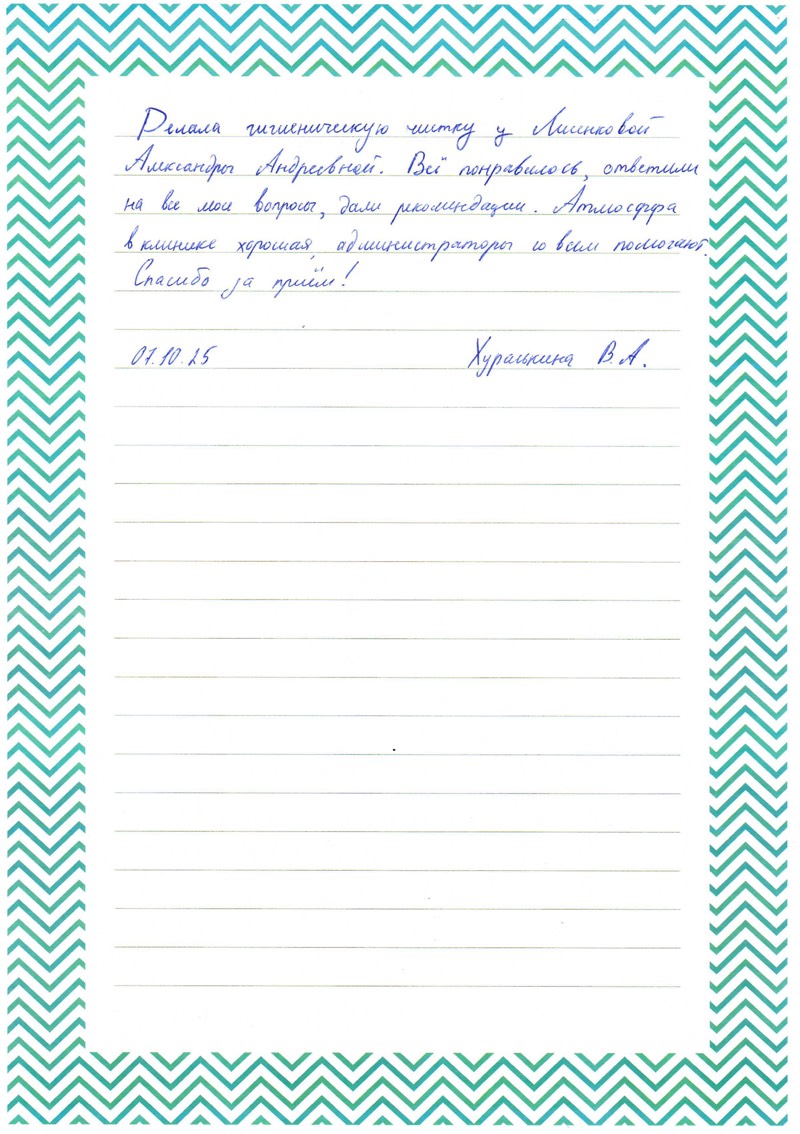 Делала гигиеническую чистку у
Александры Андреевной. Всё понравилось, ответили
на все мои вопросы, дали рекомендации. Атмосфера
в клинике хорошая, администраторы со всем помогают.
Спасибо за приём!
07.10.25 В.А.